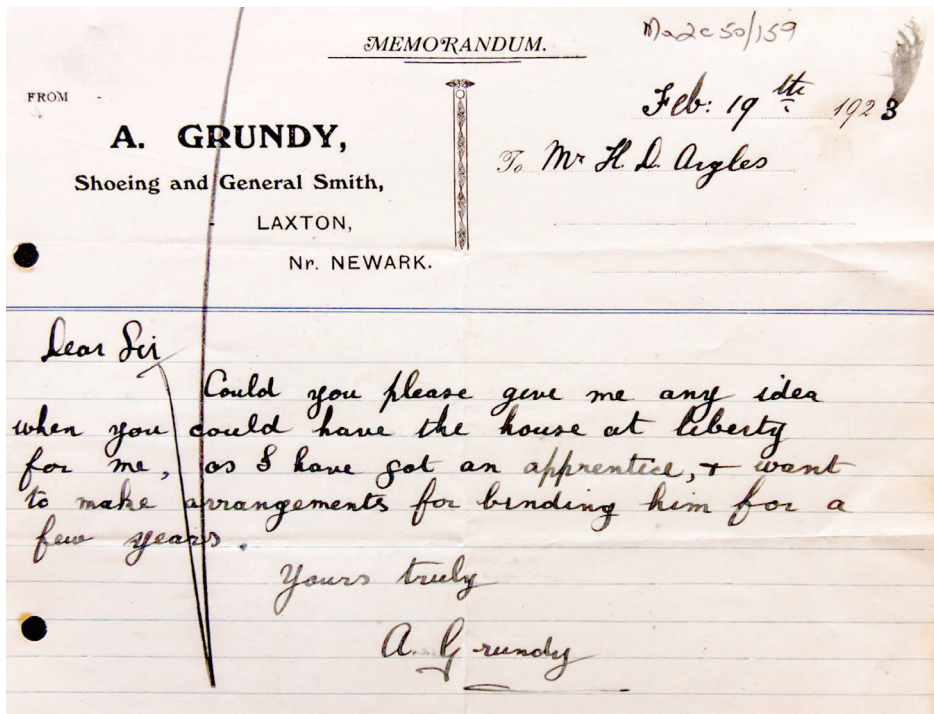 Ma2c50/159
MEMORANDUM.
FROM
A. GRUNDY,
Shoeing and General Smith,
LAXTON,
Nr. NEWARK.
Feb: 19th 1923
To Mr H. D. Argles
Dear Sir
Could you please give me any idea
when you could have the house at liberty
for me, as I have got an apprentice, + want
to make arrangements for binding him for a
few years.
Yours truly
A. Grundy